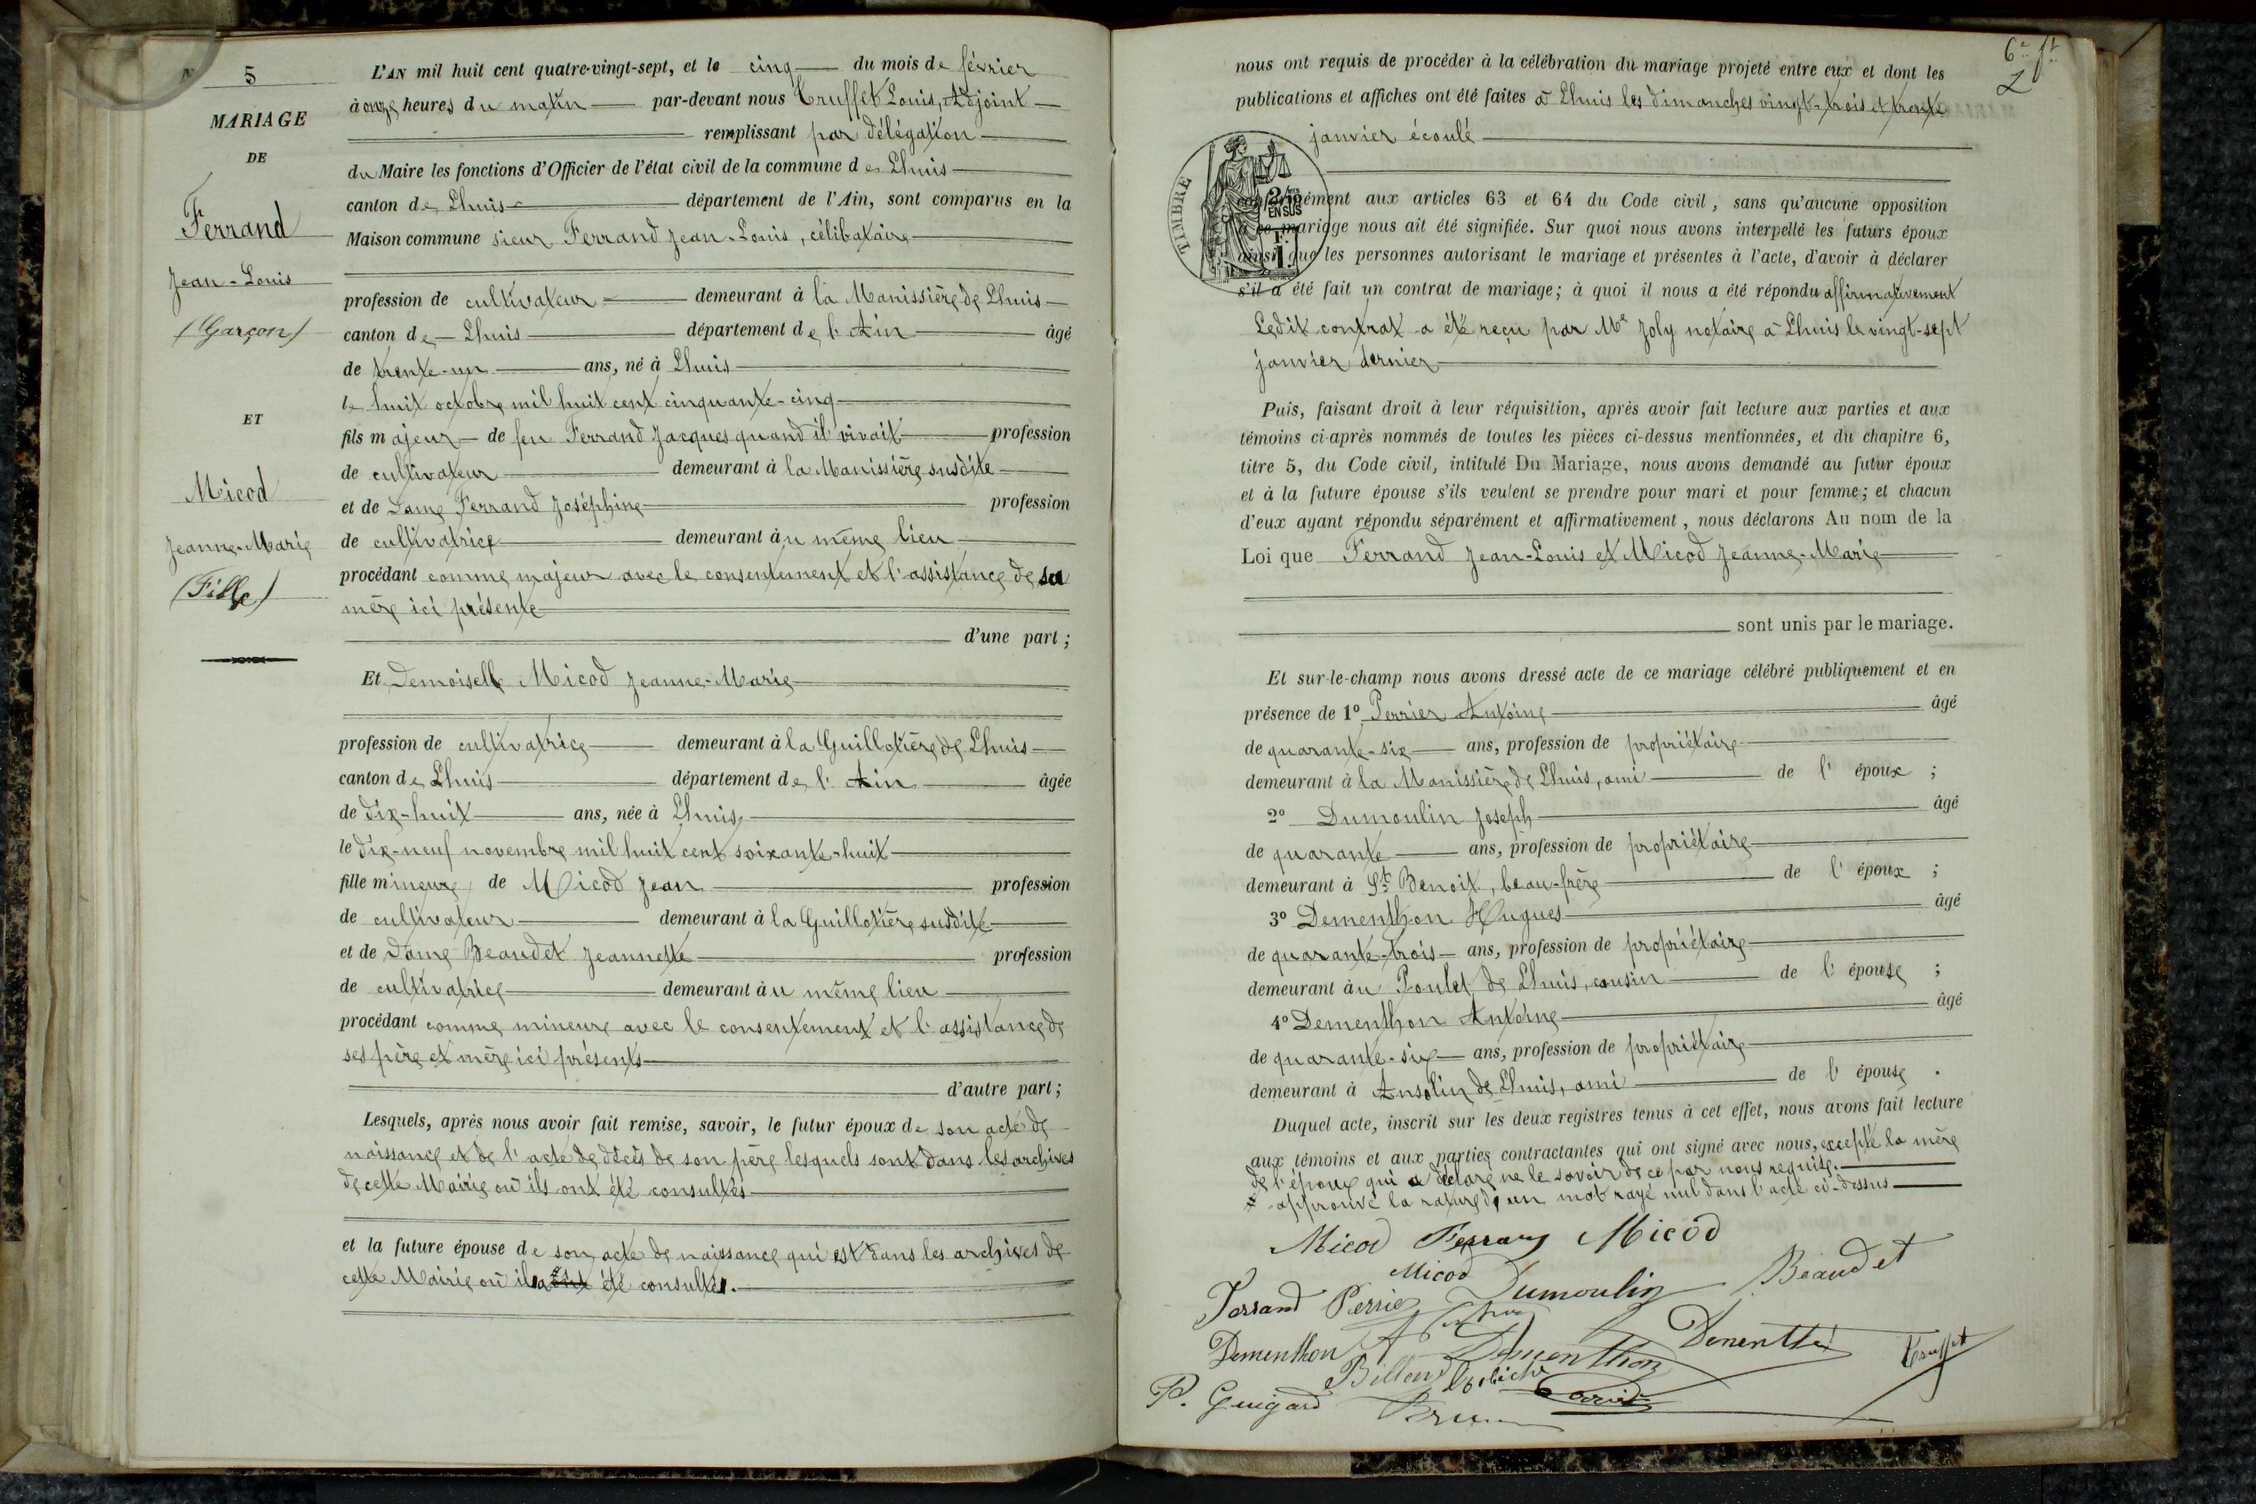 N 5
MARIAGE
DE
Ferrand
Jean-Louis
(Garçon)
ET
Micod
Jeanne-Marie
(Fille)
L'AN mil huit cent quatre-vingt-sept, et le cinq du mois de février
à onze heures du matin par-devant nous Truffet Louis, Adjoint
remplissant par délégation
du Maire les fonctions d'Officier de l'état civil de la commune de Lhuis
canton de Lhuis département de l'Ain, sont comparus en la
Maison commune sieur Ferrand Jean-Louis, célibataire
profession de cultivateur demeurant à la Manissière de Lhuis
canton de Lhuis département de l'Ain âgé
de trente-un ans, né à Lhuis
le huit octobre mil huit cent cinquante-cinq
fils majeur de feu Ferrand Jacques quand il vivait profession
de cultivateur demeurant à la Manissière susdite
et de Dame Ferrand Joséphine profession
de cultivatrice demeurant au même lieu
procédant comme majeur avec le consentement et l'assistance de sa
mère ici présente
d'une part ;
Et Demoiselle Micod Jeanne-Marie
profession de cultivatrice demeurant à la Guillotière de Lhuis
canton de Lhuis département de l'Ain âgée
de dix-huit ans, née à Lhuis,
le dix-neuf novembre mil huit cent soixante-huit
fille mineure de Micod Jean profession
de cultivateur demeurant à la Guillotière susdite
et de Dame Beaudet Jeannette profession
de cultivatrice demeurant au même lieu
procédant comme mineure avec le consentement et l'assistance de
ses père et mère ici présents
d'autre part ;
Lesquels, après nous avoir fait remise, savoir, le futur époux de son acte de
naissance et de l'acte de décès de son père lesquels sont dans les archives
de cette Mairie où ils ont été consultés
et la future épouse de son acte de naissance qui est dans les archives de
cette Mairie où il a été consulté.
6e ft
2
nous ont requis de procéder à la célébration du mariage projeté entre eux et dont les
publications et affiches ont été faites à Lhuis les dimanches vingt-trois et trente
janvier écoulé
TIMBRE
2/10es
EN SUS
F.
1.
conformément aux articles 63 et 64 du Code civil, sans qu'aucune opposition
à ce mariage nous ait été signifiée. Sur quoi nous avons interpellé les futurs époux
ainsi que les personnes autorisant le mariage et présentes à l'acte, d'avoir à déclarer
s'il a été fait un contrat de mariage ; à quoi il nous a été répondu affirmativement
Ledit contrat a été reçu par Me Joly notaire à Lhuis le vingt-sept
janvier dernier
Puis, faisant droit à leur réquisition, après avoir fait lecture aux parties et aux
témoins ci-après nommés de toutes les pièces ci-dessus mentionnées, et du chapitre 6,
titre 5, du Code civil, intitulé Du Mariage, nous avons demandé au futur époux
et à la future épouse s'ils veulent se prendre pour mari et pour femme ; et chacun
d'eux ayant répondu séparément et affirmativement, nous déclarons Au nom de la
Loi que Ferrand Jean-Louis et Micod Jeanne-Marie
sont unis par le mariage.
Et sur-le-champ nous avons dressé acte de ce mariage célébré publiquement et en
présence de 1° Perrier Antoine âgé
de quarante-six ans, profession de propriétaire
demeurant à la Manissière de Lhuis, ami de l'époux ;
2° Dumoulin Joseph âgé
de quarante ans, profession de propriétaire
demeurant à St Benoit, beau-frère de l'époux ;
3° Dementhon Hugues âgé
de quarante-trois ans, profession de propriétaire
demeurant au Poulet de Lhuis, cousin de l'épouse ;
4° Dementhon Antoine âgé
de quarante-six ans, profession de propriétaire
demeurant à Ansolin de Lhuis, ami de l'épouse .
Duquel acte, inscrit sur les deux registres tenus à cet effet, nous avons fait lecture
aux témoins et aux parties contractantes qui ont signé avec nous, excepté la mère
de l'époux qui a déclaré ne le savoir de ce par nous requise.
approuvé la rature d'un mot rayé nul dans l'acte ci-dessus
Micod Ferrand Micod
Micod Dumoulin Beaudet
Ferrand Perrier
Dementhon A Dementhon Truffet
Billon
P. Guigard